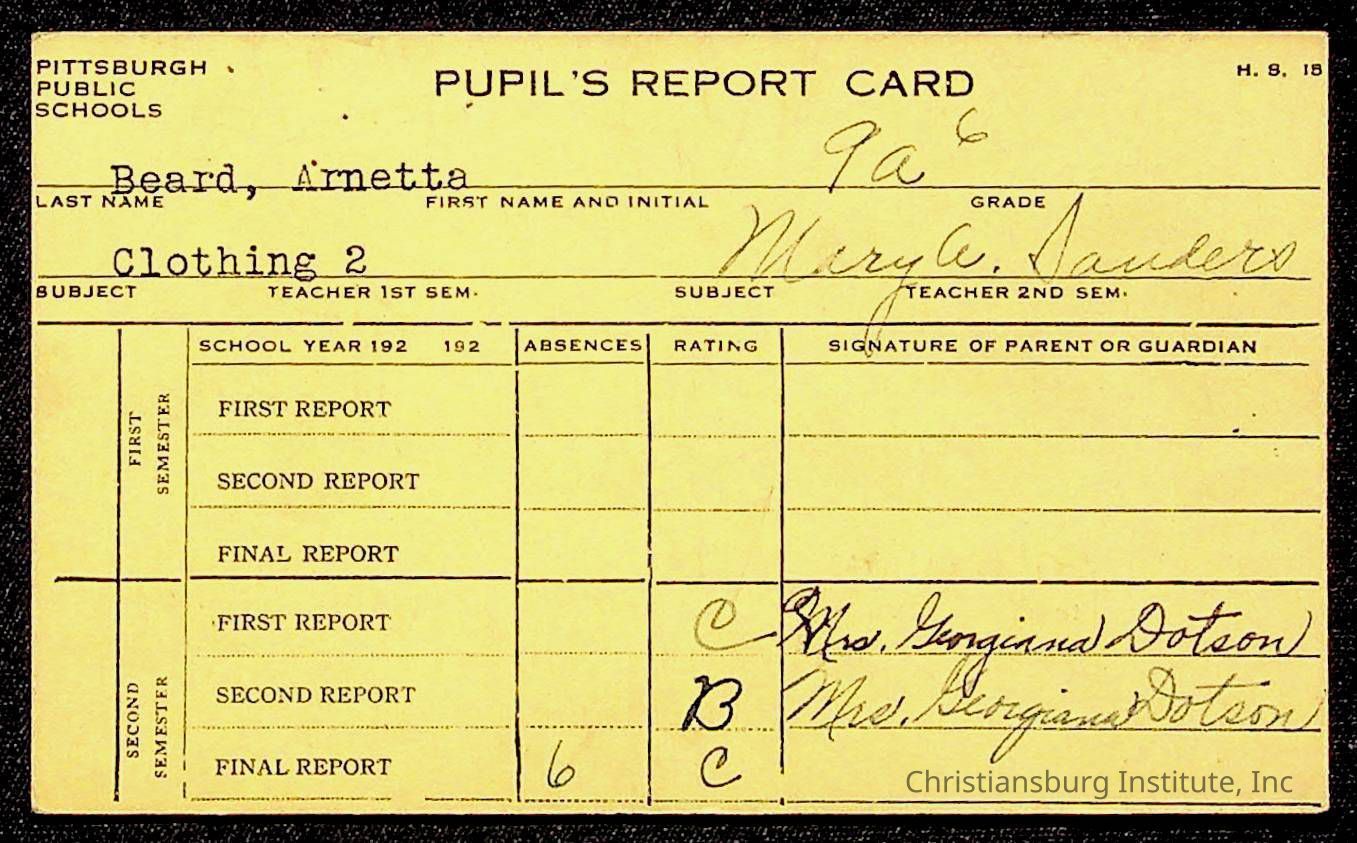 PITTSBURGH
PUBLIC
SCHOOLS
PUPIL'S REPORT CARD
H. S. 15
Beard, Arnetta 9a 6
LAST NAME FIRST NAME AND INITIAL GRADE
Clothing 2 Mary A. Sanders
SUBJECT TEACHER 1ST SEM. SUBJECT TEACHER 2ND SEM.
SCHOOL YEAR 192 192 ABSENCES RATING SIGNATURE OF PARENT OR GUARDIAN
FIRST SEMESTER
FIRST REPORT
SECOND REPORT
FINAL REPORT
SECOND SEMESTER
FIRST REPORT C Mrs. Georgiana Dotson
SECOND REPORT B Mrs. Georgiana Dotson
FINAL REPORT 6 C
Christiansburg Institute, Inc